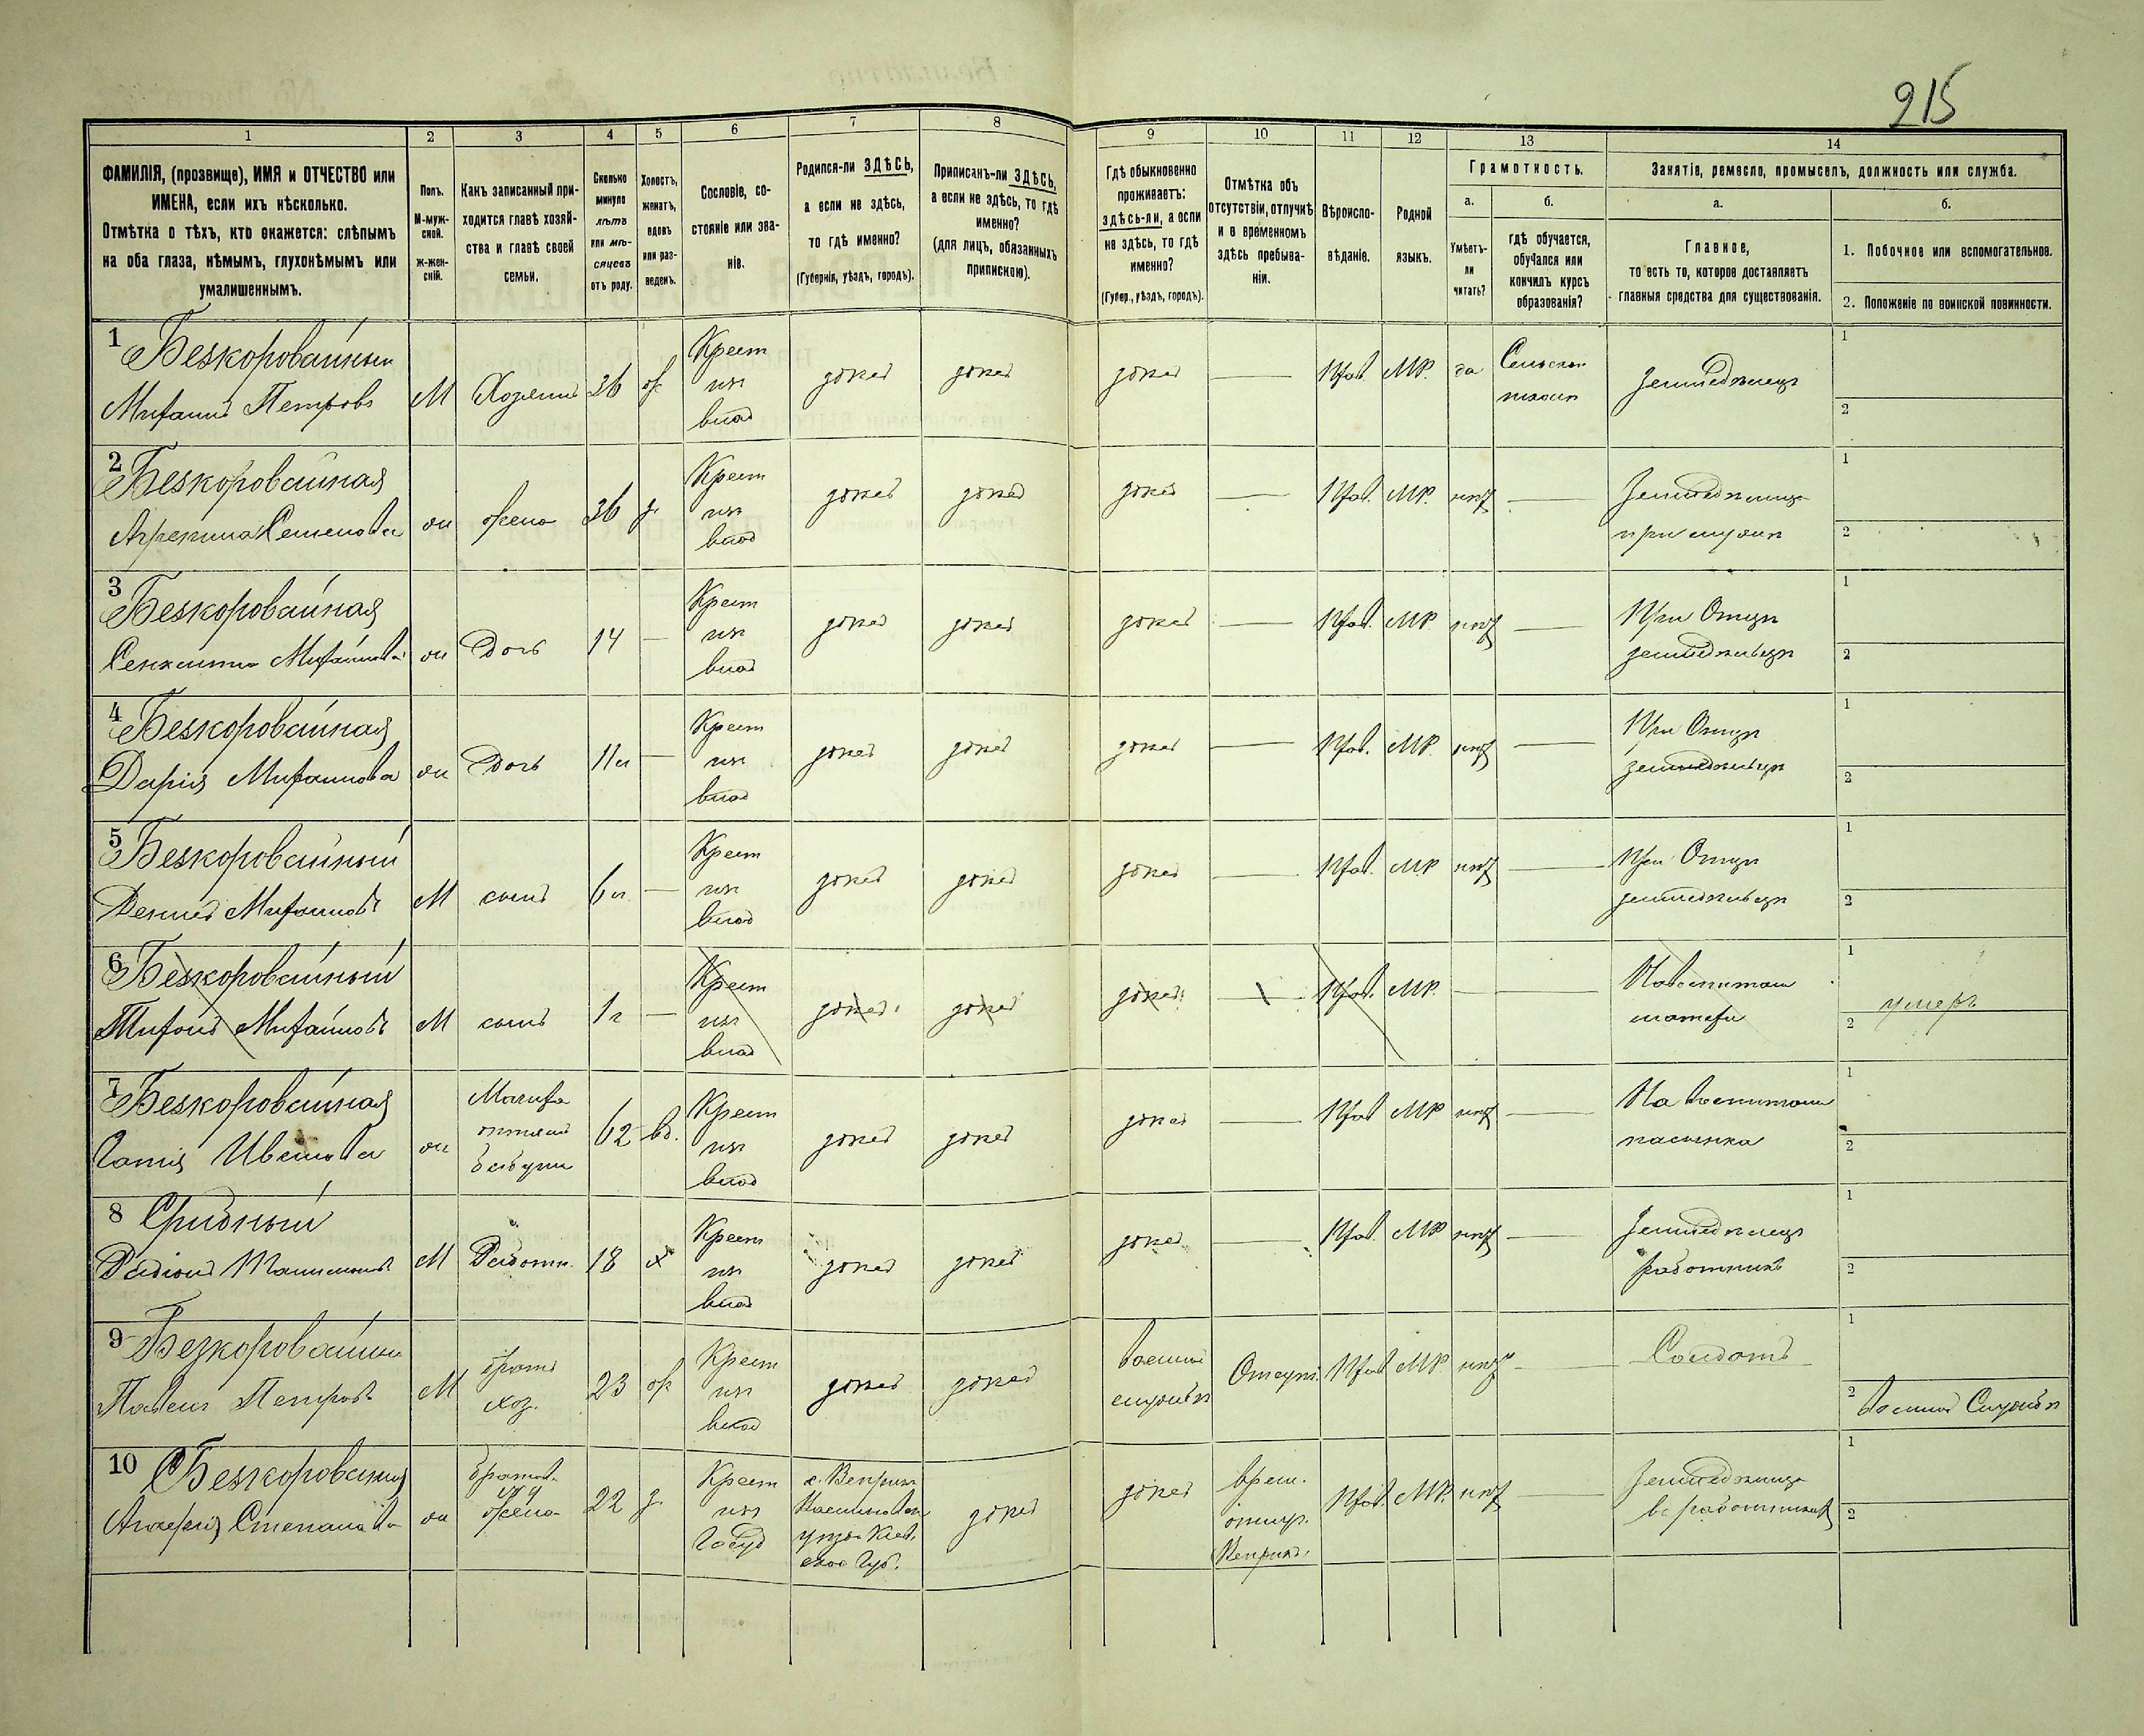 215
1
2
3
4
5
6
7
8
9
10
11
12
13
14
ФАМИЛІЯ, (прозвище), ИМЯ и ОТЧЕСТВО или
ИМЕНА, если ихъ нѣсколько.
Отмѣтка о тѣхъ, кто окажется: слѣпымъ
на оба глаза, нѣмымъ, глухонѣмымъ или
умалишеннымъ.
Полъ.
М-муж-
ской.
ж-жен-
скій.
Какъ записанный при-
ходится главѣ хозяй-
ства и главѣ своей
семьи.
Сколько
минуло
лѣтъ
или мѣ-
сяцевъ
отъ роду.
Холостъ,
женатъ,
вдовъ
или раз-
веденъ.
Сословіе, со-
стояніе или зва-
ніе.
Родился-ли ЗДѢСЬ,
а если не здѣсь,
то гдѣ именно?
(Губернія, уѣздъ, городъ).
Приписанъ-ли ЗДѢСЬ,
а если не здѣсь, то гдѣ
именно?
(для лицъ, обязанныхъ
припискою).
Гдѣ обыкновенно
проживаетъ:
здѣсь-ли, а если
не здѣсь, то гдѣ
именно?
(Губер., уѣздъ, городъ).
Отмѣтка объ
отсутствіи, отлучкѣ
и о временномъ
здѣсь пребыва-
ніи.
Вѣроиспо-
вѣданіе.
Родной
языкъ.
Грамотность.
а.
Умѣетъ-
ли
читать?
б.
гдѣ обучается,
обучался или
кончилъ курсъ
образованія?
Занятіе, ремесло, промыселъ, должность или служба.
а.
Главное,
то есть то, которое доставляетъ
главныя средства для существованія.
б.
1. Побочное или вспомогательное.
2. Положеніе по воинской повинности.
1 Безкоровайный
Михаилъ Петровъ
М
Хозяинъ
36
ж
Крест
изъ
влад
здѣсь
здѣсь
здѣсь
Прав.
МР.
да
Сельской
школѣ
Земледѣлецъ
1
2
2 Безкоровайная
Агрепина Семенова
ж
жена
36
з.
Крест
изъ
влад
здѣсь
здѣсь
здѣсь
Прав.
МР.
нѣт
Земледѣлица
при мужѣ
1
2
3 Безкоровайная
Михайлова
ж
Дочь
14
Крест
изъ
влад
здѣсь
здѣсь
здѣсь
Прав.
МР.
нѣт
При Отцѣ
земледѣльцѣ
1
2
4 Безкоровайная
Дарія Михайлова
ж
Дочь
11 л
Крест
изъ
влад
здѣсь
здѣсь
здѣсь
Прав.
МР.
нѣт
При Отцѣ
земледѣльцѣ
1
2
5 Безкоровайный
Денисъ Михайловъ
М
сынъ
6 л.
Крест
изъ
влад
здѣсь
здѣсь
здѣсь
Прав.
МР
нѣт
При Отцѣ
земледѣльцѣ
1
2
6 Безкоровайный
Михайловъ
М
сынъ
1 г
Крест
изъ
влад
здѣсь
здѣсь
здѣсь
Прав.
МР.
матери
1
2
умеръ
7 Безкоровайная
Иванова
ж
62
вд.
Крест
изъ
влад
здѣсь
здѣсь
здѣсь
Прав
МР
нѣт
На воспитаніи
пасынка
1
2
8
М
Работн.
18
х
Крест
изъ
влад
здѣсь
здѣсь
здѣсь
Прав.
МР
нѣт
Земледѣлецъ
работникъ
1
2
9 Безкоровайный
Павелъ Петровъ
М
братъ
хоз.
23
ж
Крест
изъ
влад
здѣсь
здѣсь
военной
службѣ
Отсутс.
Прав
МР
нѣт
Солдатъ
1
2
военной Службѣ
10 Безкоровайная
Степанова
ж
жена
22
з.
Крест
изъ
Госуд
с. Веприк
уѣзда Кіев.
ской Губ.
здѣсь
здѣсь
врем.
отлуч.
Веприкъ
Прав.
МР.
нѣт
Земледѣлица
1
2